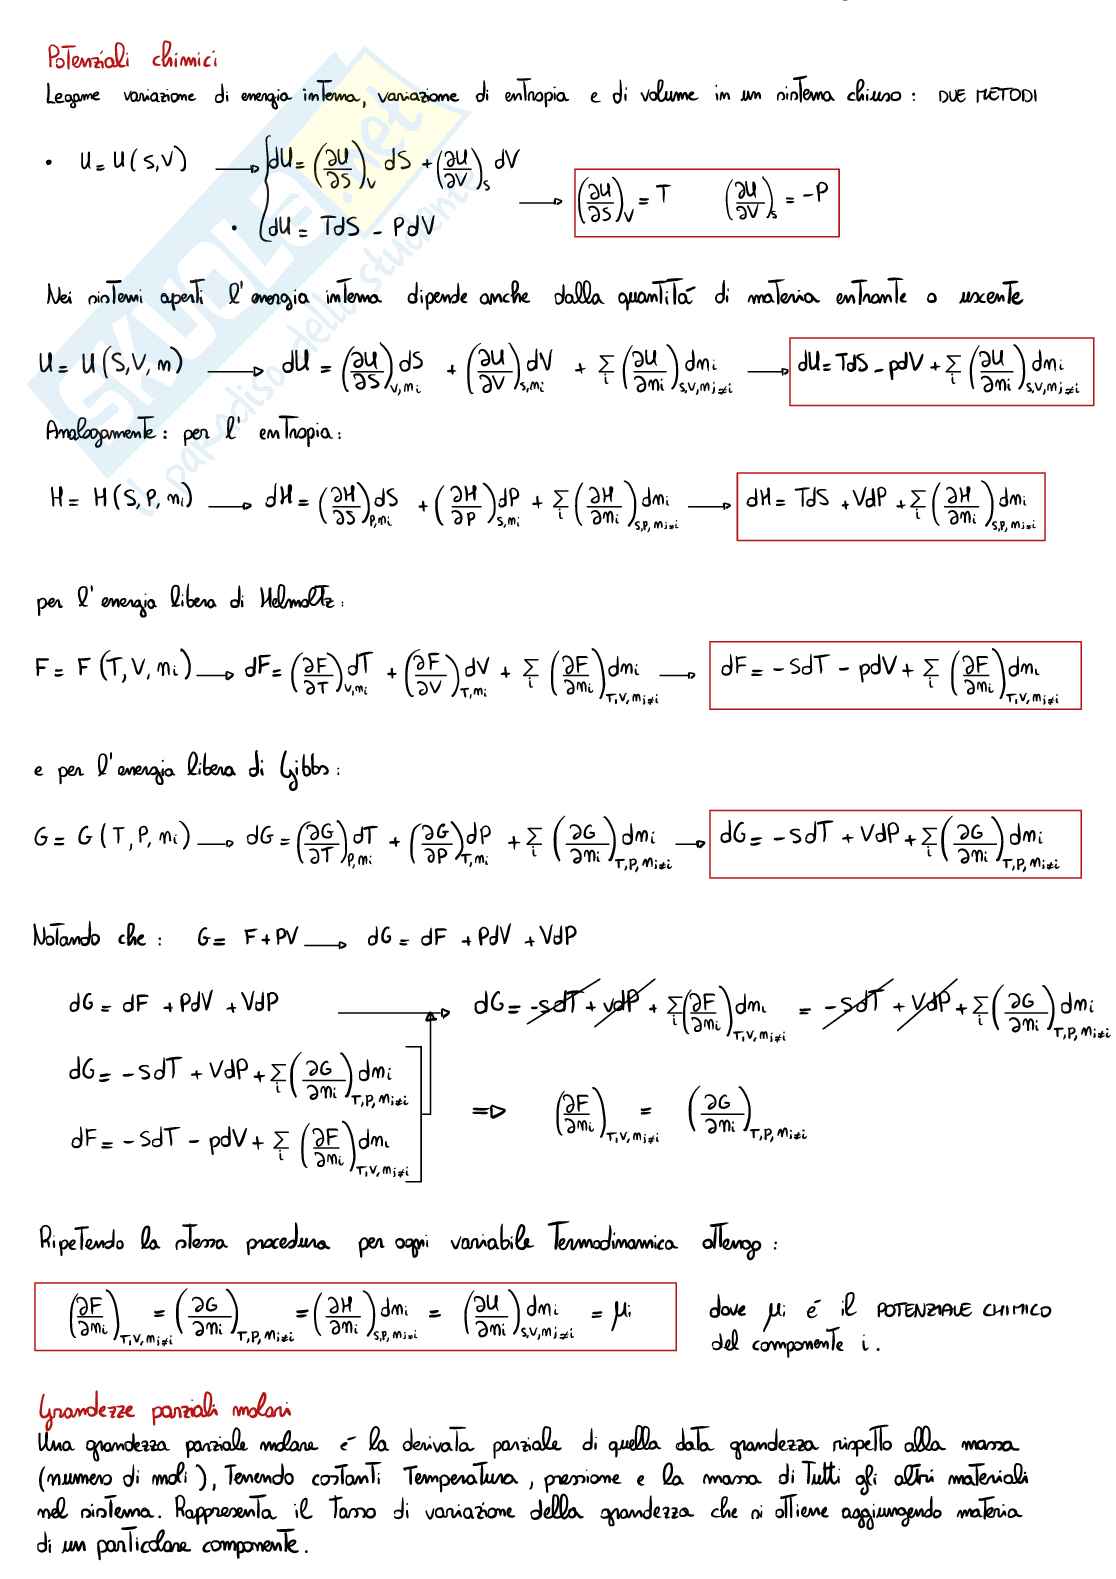 Potenziali chimici
Legame variazione di energia interna, variazione di entropia e di volume in un sistema chiuso : DUE METODI
• U = U(S,V) → { dU = (∂U/∂S)_V dS + (∂U/∂V)_S dV
• dU = TdS - PdV → (∂U/∂S)_V = T (∂U/∂V)_S = -P
Nei sistemi aperti l'energia interna dipende anche dalla quantità di materia entrante o uscente
U = U(S,V,n) → dU = (∂U/∂S)_V,ni dS + (∂U/∂V)_S,ni dV + Σi (∂U/∂ni)_S,V,nj≠i dni → dU = TdS - pdV + Σi (∂U/∂ni)_S,V,nj≠i dni
Analogamente : per l' entropia :
H = H(S,P,ni) → dH = (∂H/∂S)_P,ni dS + (∂H/∂P)_S,ni dP + Σi (∂H/∂ni)_S,P,nj≠i dni → dH = TdS + VdP + Σi (∂H/∂ni)_S,P,nj≠i dni
per l' energia libera di Helmoltz :
F = F(T,V,ni) → dF = (∂F/∂T)_V,ni dT + (∂F/∂V)_T,ni dV + Σi (∂F/∂ni)_T,V,nj≠i dni → dF = -SdT - pdV + Σi (∂F/∂ni)_T,V,nj≠i dni
e per l'energia libera di Gibbs :
G = G(T,P,ni) → dG = (∂G/∂T)_P,ni dT + (∂G/∂P)_T,ni dP + Σi (∂G/∂ni)_T,P,ni≠i dni → dG = -SdT + VdP + Σi (∂G/∂ni)_T,P,ni≠i dni
Notando che : G = F + PV → dG = dF + PdV + VdP
dG = dF + PdV + VdP → dG = -SdT + VdP + Σi (∂F/∂ni)_T,V,nj≠i dni = -SdT + VdP + Σi (∂G/∂ni)_T,P,ni≠i dni
dG = -SdT + VdP + Σi (∂G/∂ni)_T,P,ni≠i dni
dF = -SdT - pdV + Σi (∂F/∂ni)_T,V,nj≠i dni
⇒ (∂F/∂ni)_T,V,nj≠i = (∂G/∂ni)_T,P,ni≠i
Ripetendo la stessa procedura per ogni variabile Termodinamica ottengo :
(∂F/∂ni)_T,V,nj≠i = (∂G/∂ni)_T,P,ni≠i = (∂H/∂ni)_S,P,nj≠i dni = (∂U/∂ni)_S,V,nj≠i dni = μi dove μi é il POTENZIALE CHIMICO
del componente i.
Grandezze parziali molari
Una grandezza parziale molare é la derivata parziale di quella data grandezza rispetto alla massa
(numero di moli), Tenendo costanti Temperatura, pressione e la massa di Tutti gli altri materiali
nel sistema. Rappresenta il Tasso di variazione della grandezza che si ottiene aggiungendo materia
di un particolare componente.
SKUOLA.net
il paradiso dello studente